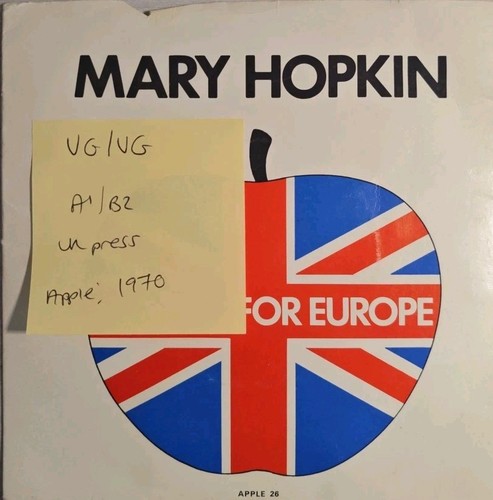 MARY HOPKIN
VG/VG
A1/B2
UK press
Apple, 1970
FOR EUROPE
APPLE 26